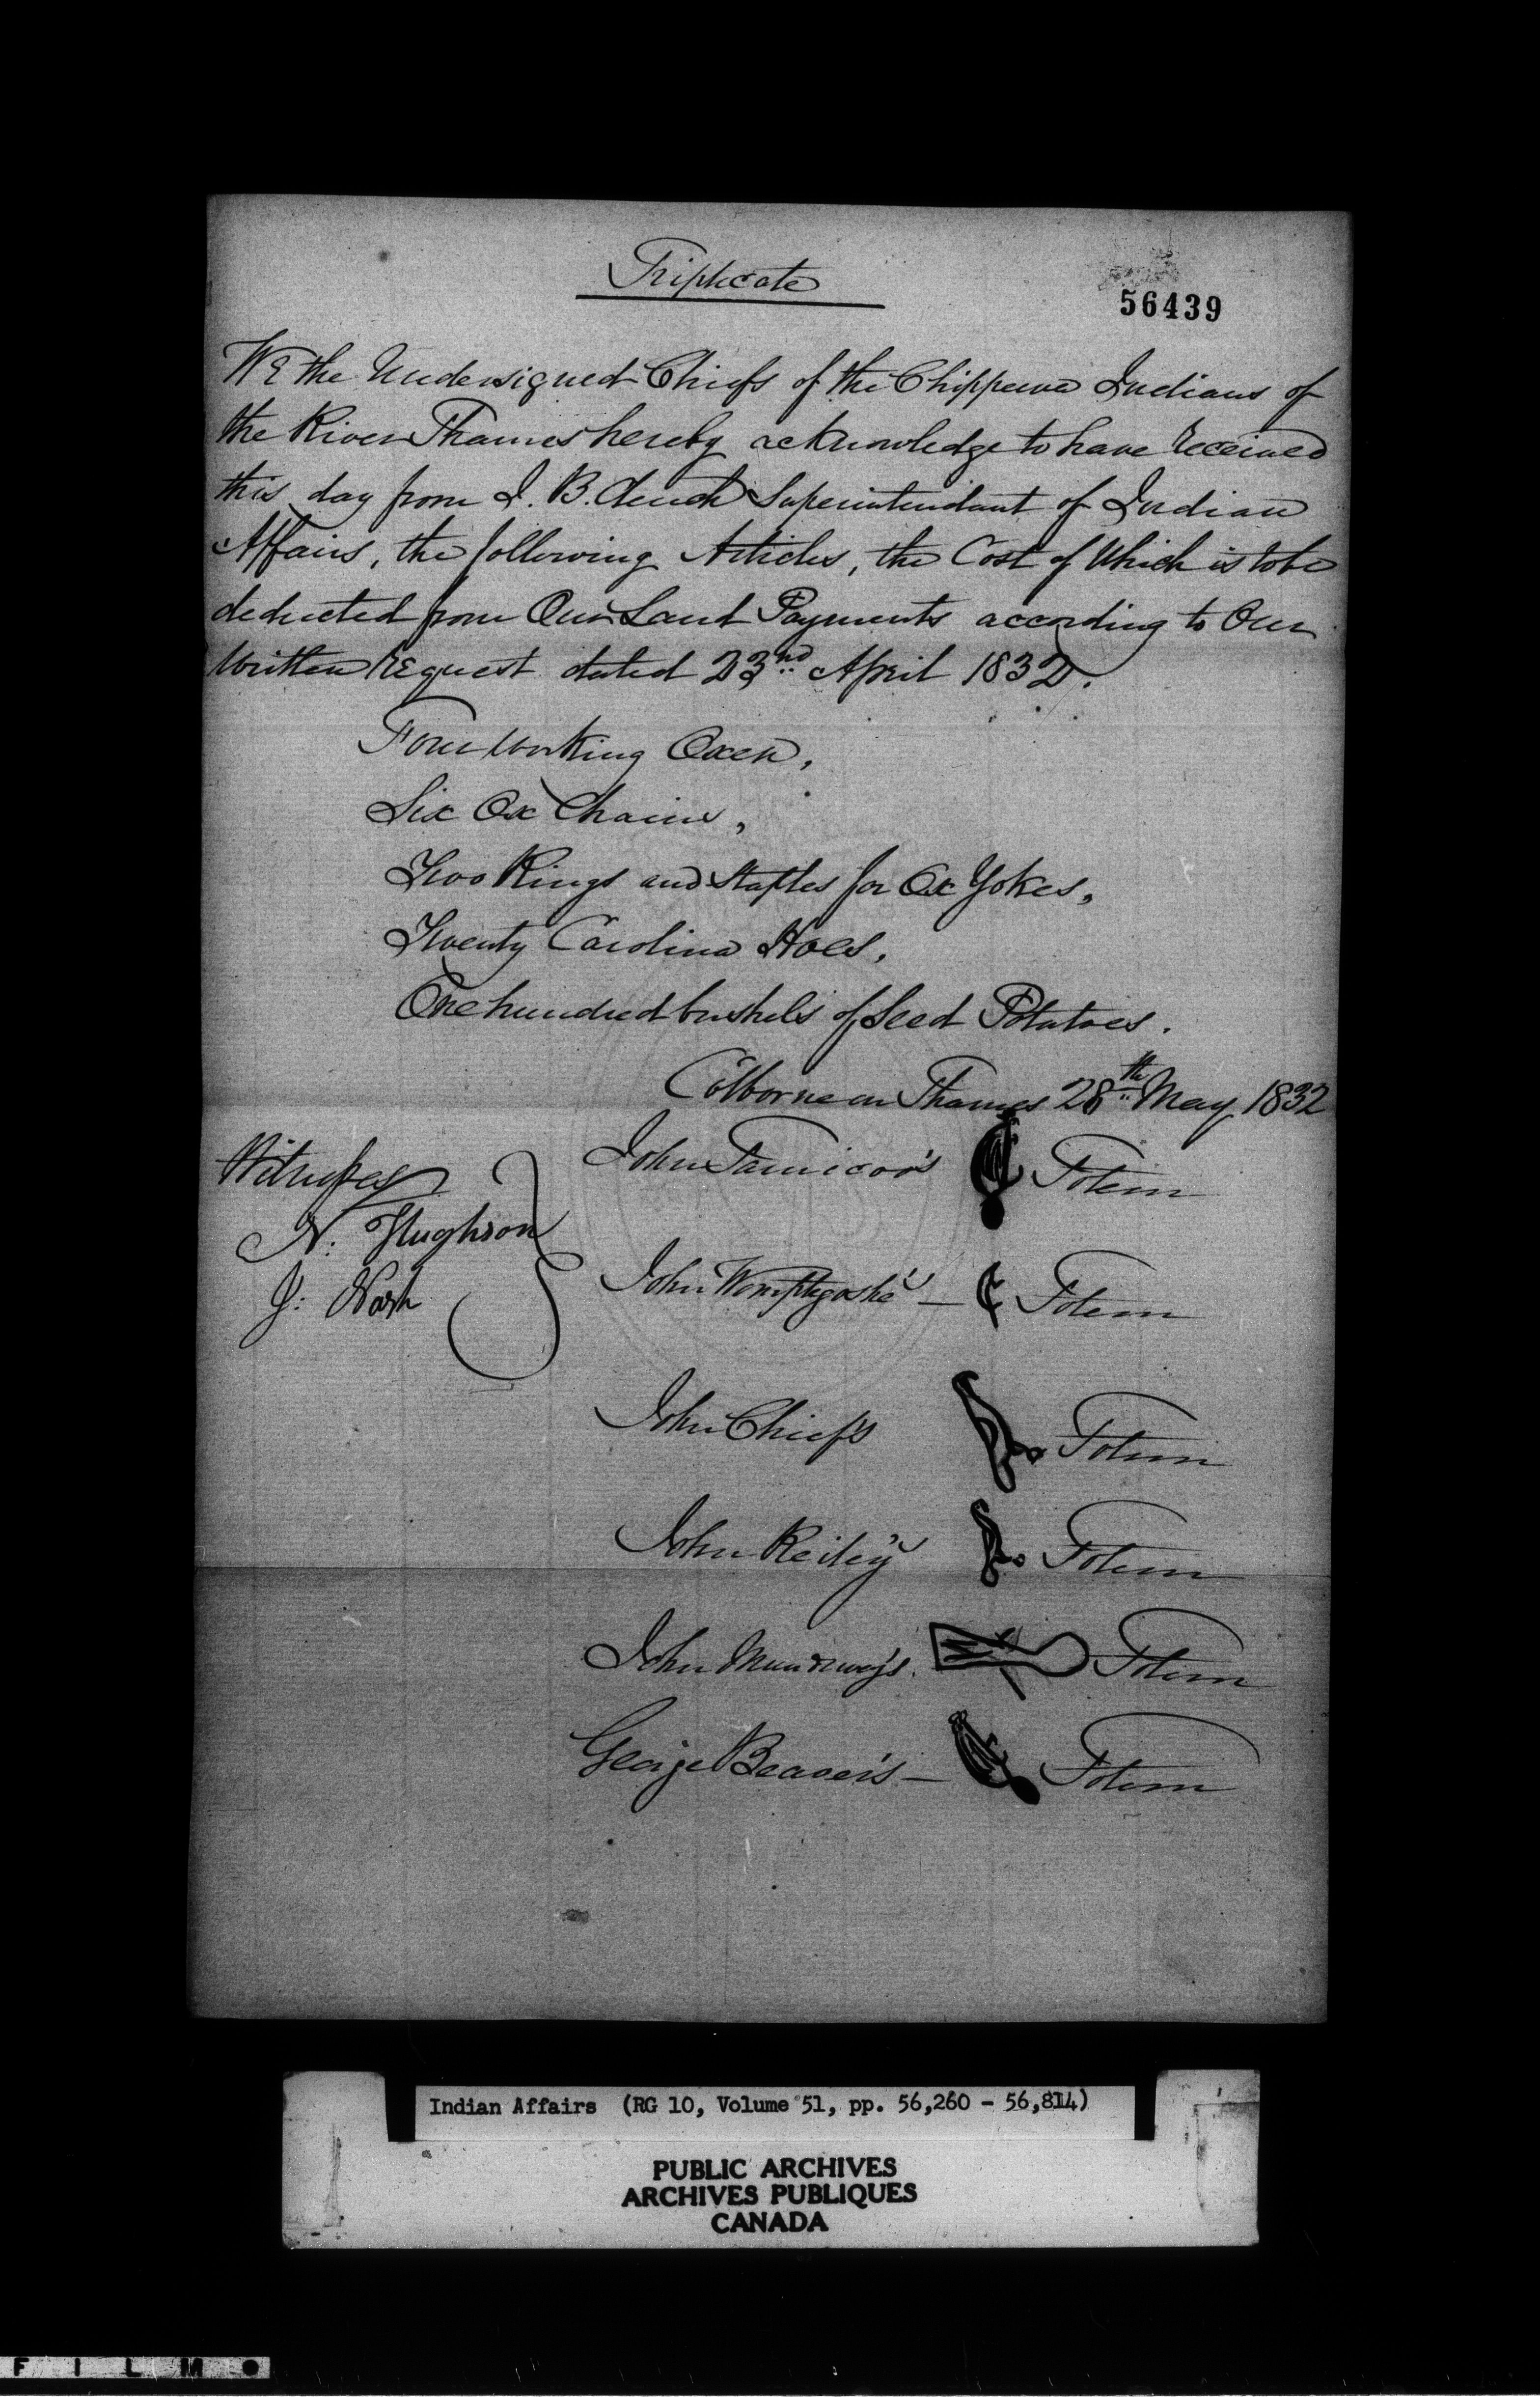 Triplicate
56439
WE the Undersigned Chiefs of the Chippewa Indians of
the River Thames hereby acknowledge to have received
this day from J. B. Clench Superintendant of Indian
Affairs, the following Articles, the Cost of Which is to be
deducted from Our Land Payments according to Our
Written REquest dated 23nd April 1832.
Four working Oxen,
Six Ox Chains,
Two Rings and Staples for Ox Yokes,
Twenty Carolina Hoes,
One hundred bushels of Seed Potatoes.
Colborne on Thames 28th May 1832
Witnesses
N. Hughson
J. Nash
John Tumicoo's Totem
John Totem
John Chief's Totem
John Reiley's Totem
John Totem
George Beaver's — Totem
Indian Affairs (RG 10, Volume 51, pp. 56,260 - 56,814)
PUBLIC ARCHIVES
ARCHIVES PUBLIQUES
CANADA
FILM